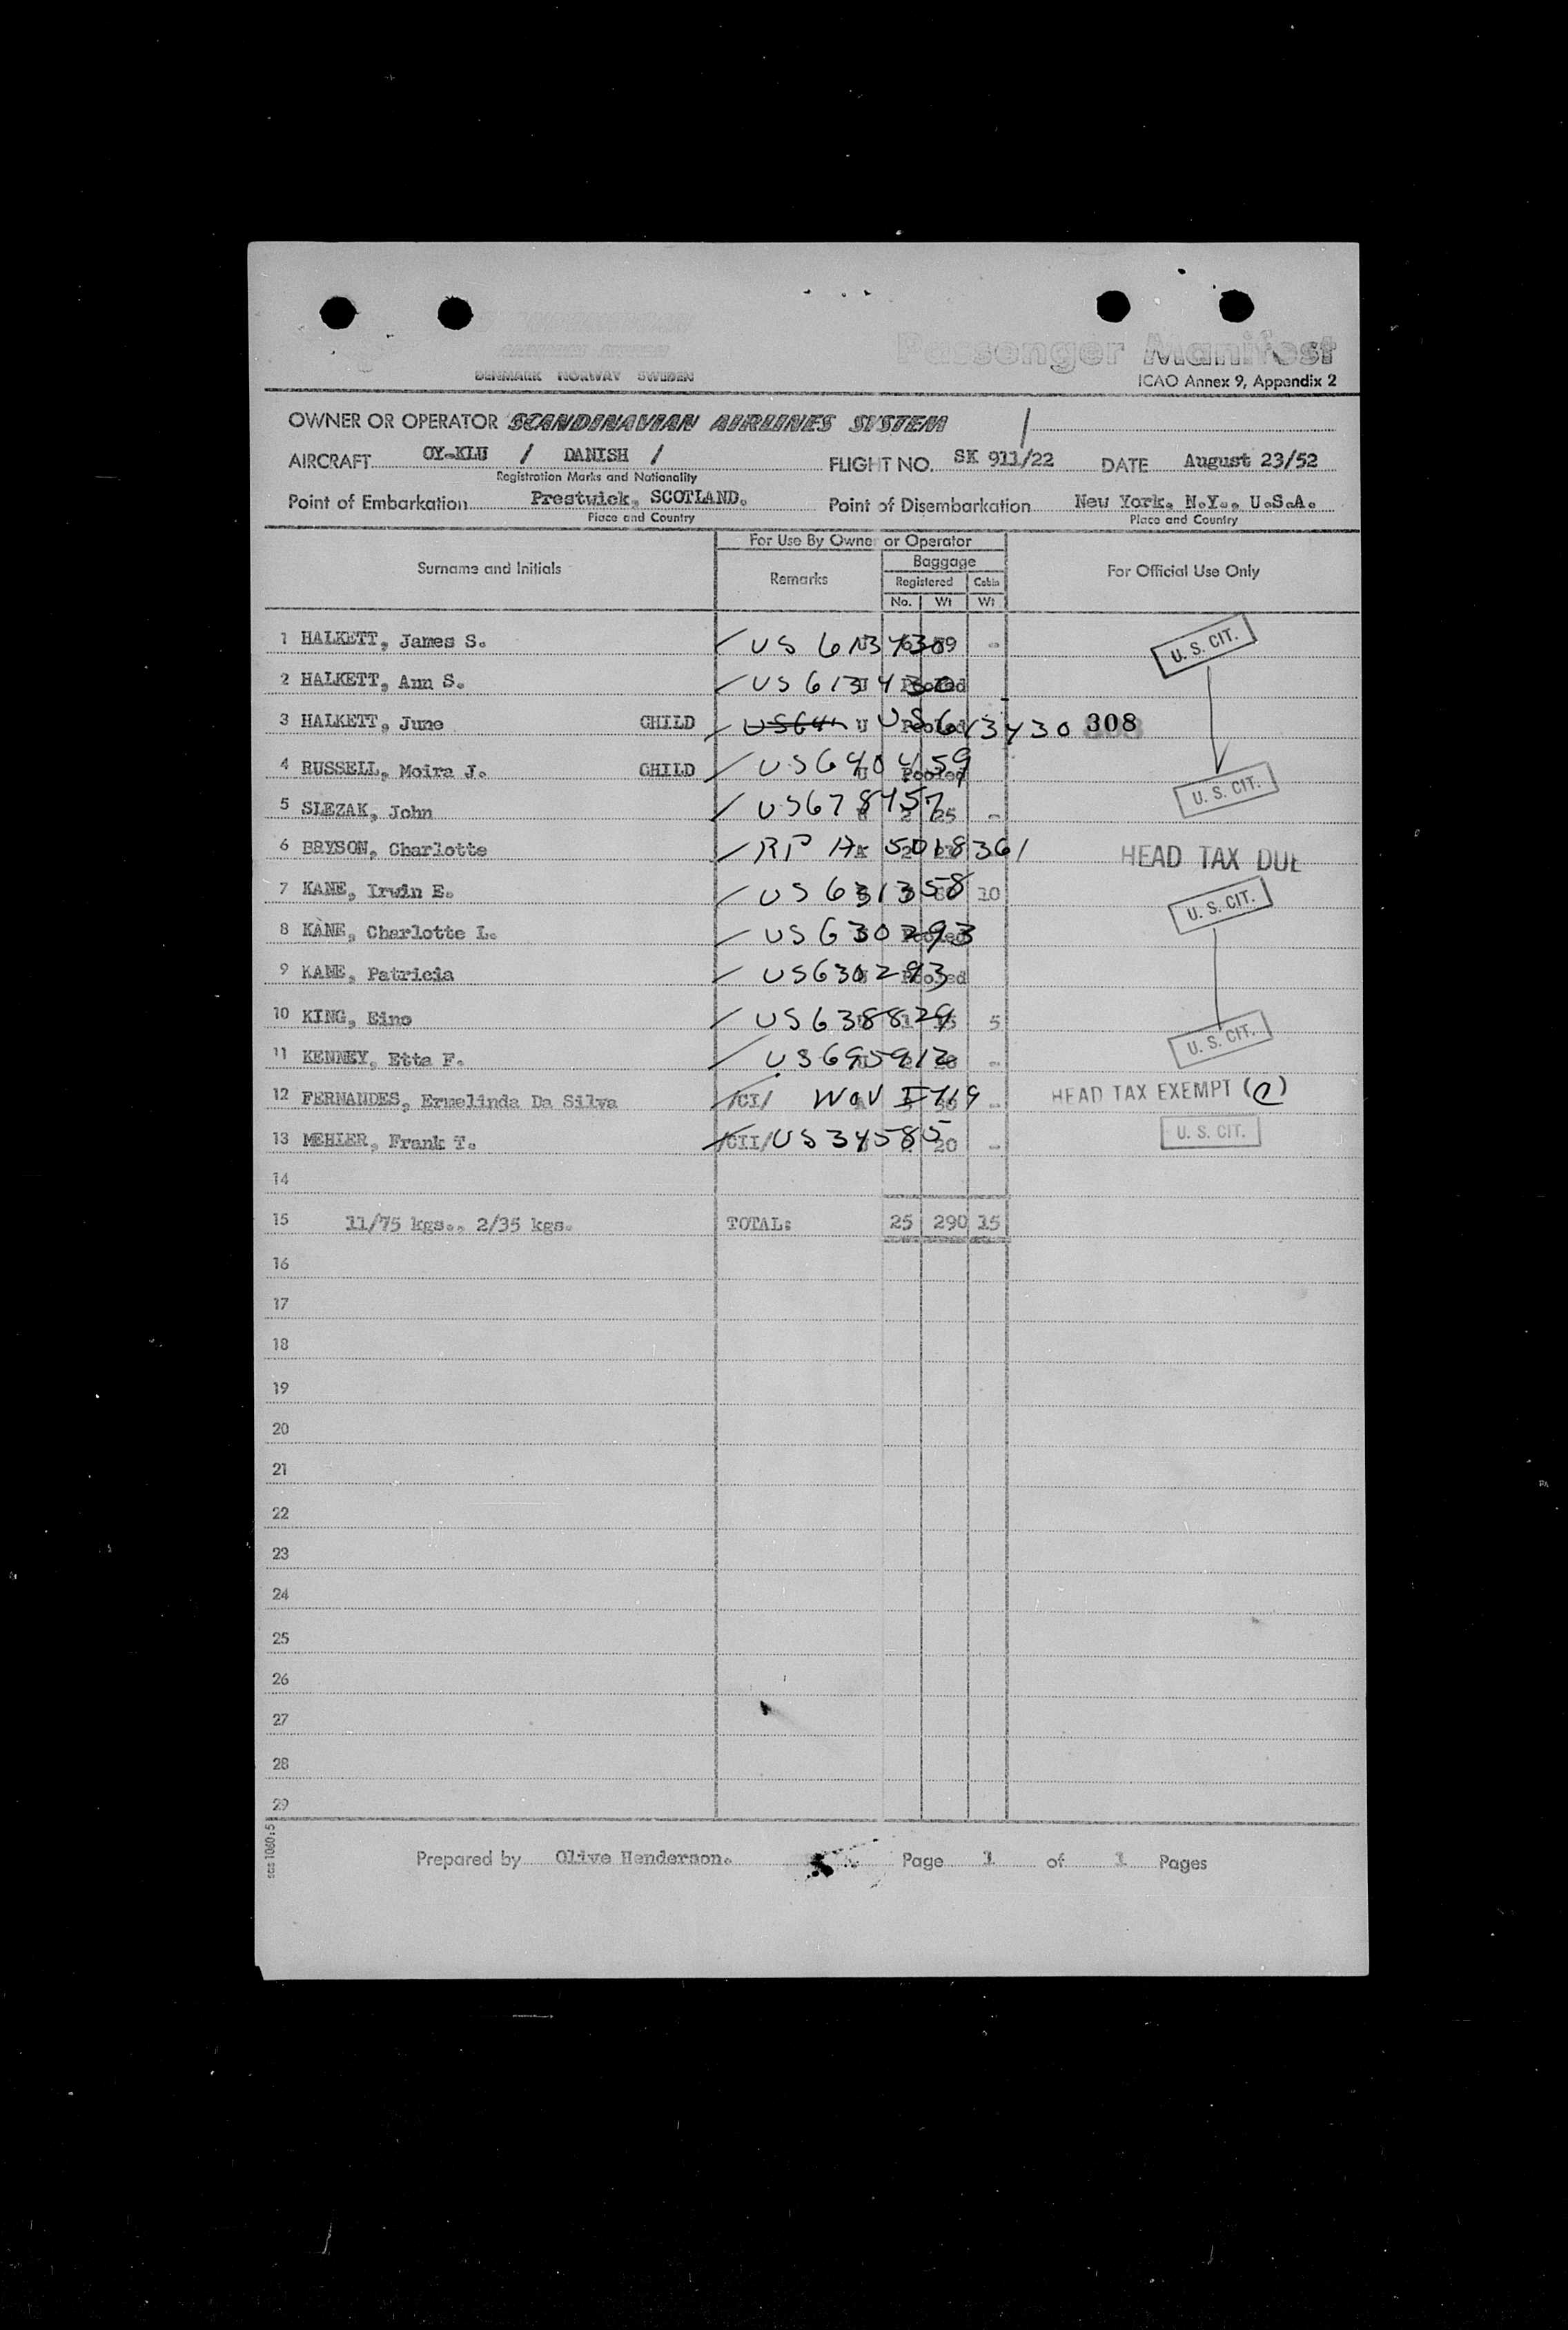 DENMARK NORWAY SWEDEN
Passenger Manifest
ICAO Annex 9, Appendix 2
OWNER OR OPERATOR SCANDINAVIAN AIRLINES SYSTEM /
AIRCRAFT OY-KLU / DANISH / FLIGHT NO. SK 911/22 DATE August 23/52
Registration Marks and Nationality
Point of Embarkation Prestwick, SCOTLAND. Point of Disembarkation New York, N.Y., U.S.A.
Place and Country Place and Country
For Use By Owner or Operator
Surname and Initials Remarks Baggage For Official Use Only
Registered Cabin
No. Wt Wt
1 HALKETT, James S. US 613430 - U. S. CIT.
2 HALKETT, Ann S. US 613430 Pooled
3 HALKETT, June CHILD U US613430 308
4 RUSSELL, Moira J. CHILD US640459 Pooled U. S. CIT.
5 SLEZAK, John US678457 2 25 -
6 BRYSON, Charlotte RP A 5018361 HEAD TAX DUE
7 KANE, Irwin E. US 631358 10 U. S. CIT.
8 KANE, Charlotte L. US 630293 Pooled
9 KANE, Patricia US630293 Pooled
10 KING, Eino US638829 5
11 KENNEY, Etta F. US695912 - U. S. CIT.
12 FERNANDES, Ermelinda Da Silva /CI/ - HEAD TAX EXEMPT
13 MEHLER, Frank T. /CII/ US34585 20 - U. S. CIT.
14
15 11/75 kgs., 2/35 kgs. TOTAL: 25 290 15
16
17
18
19
20
21
22
23
24
25
26
27
28
29
scs 1060:5
Prepared by Olive Henderson. Page 1 of 1 Pages